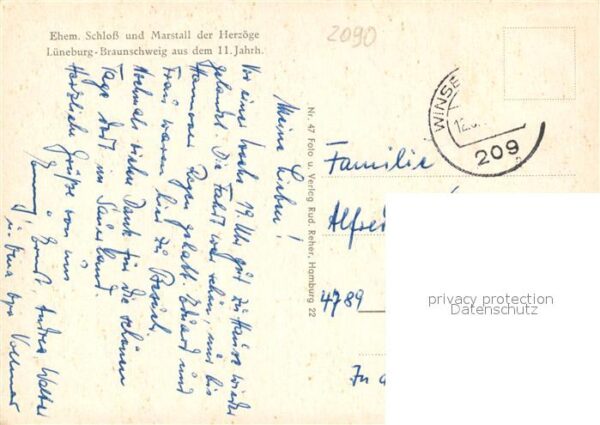 Ehem. Schloß und Marstall der Herzöge
Lüneburg-Braunschweig aus dem 11. Jahrh.
2090
Meine Lieben!
Vor einer Woche 19 Uhr gut zu Hause wieder
gelandet. Die Fahrt war schön, nur bis
Hannover Regen gehabt. Eduard und
Frau waren hier zu Besuch.
Nochmals vielen Dank für die schönen
Tage dort im Sauerland.
Herzliche Grüße von uns
Ernst
u.
Nr. 47 Foto u. Verlag Rud. Reher, Hamburg 22
WINSE
12.
209
Familie
Alfred
4789
In
privacy protection
Datenschutz